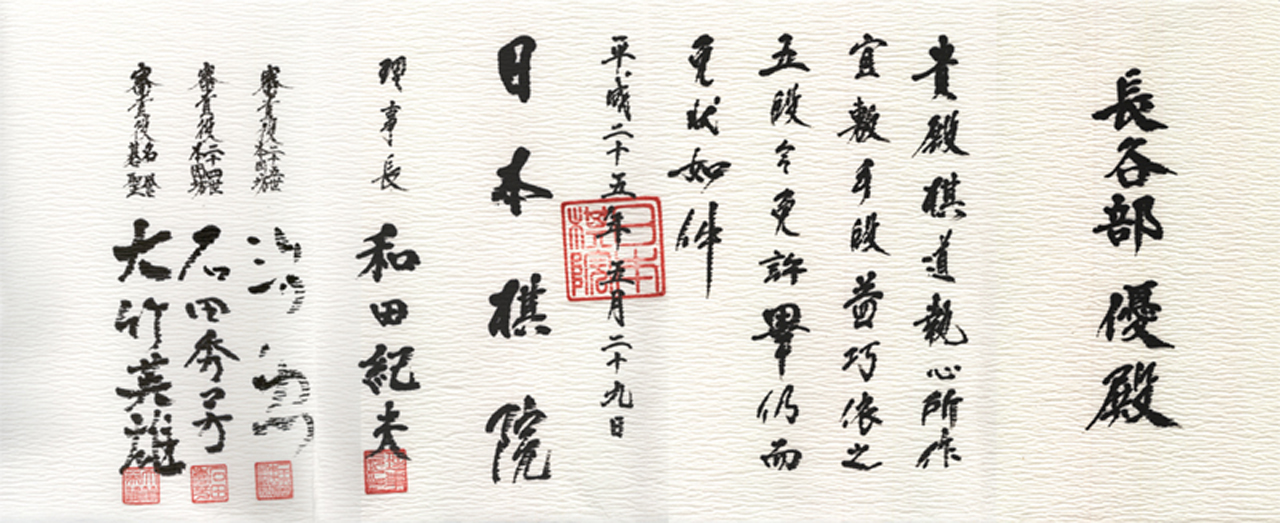 長谷部 優殿
貴殿棋道執心所作
宜敷手段益巧依之
五段令免許畢仍而
免状如件
平成二十五年五月二十九日
日本棋院
日本棋院
理事長 和田紀夫
審査役二十五世本因坊
審査役二十四世本因坊 石田秀芳
審査役名誉碁聖 大竹英雄